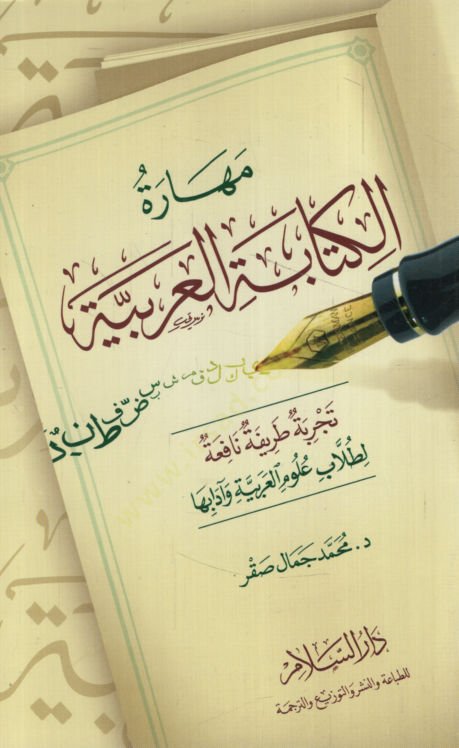 مَهَارَةُ
الكِتَابَةِ العَرَبِيَّةِ
تَجْرِبَةٌ طَرِيفَةٌ نَافِعَةٌ
لِطُلَّابِ عُلُومِ العَرَبِيَّةِ وَآدَابِهَا
د. مُحَمَّد جَمَال صَقْر
دَارُ السَّلَامِ
للطباعة والنشر والتوزيع والترجمة